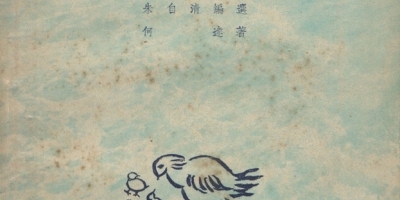 朱自清編選
何達著